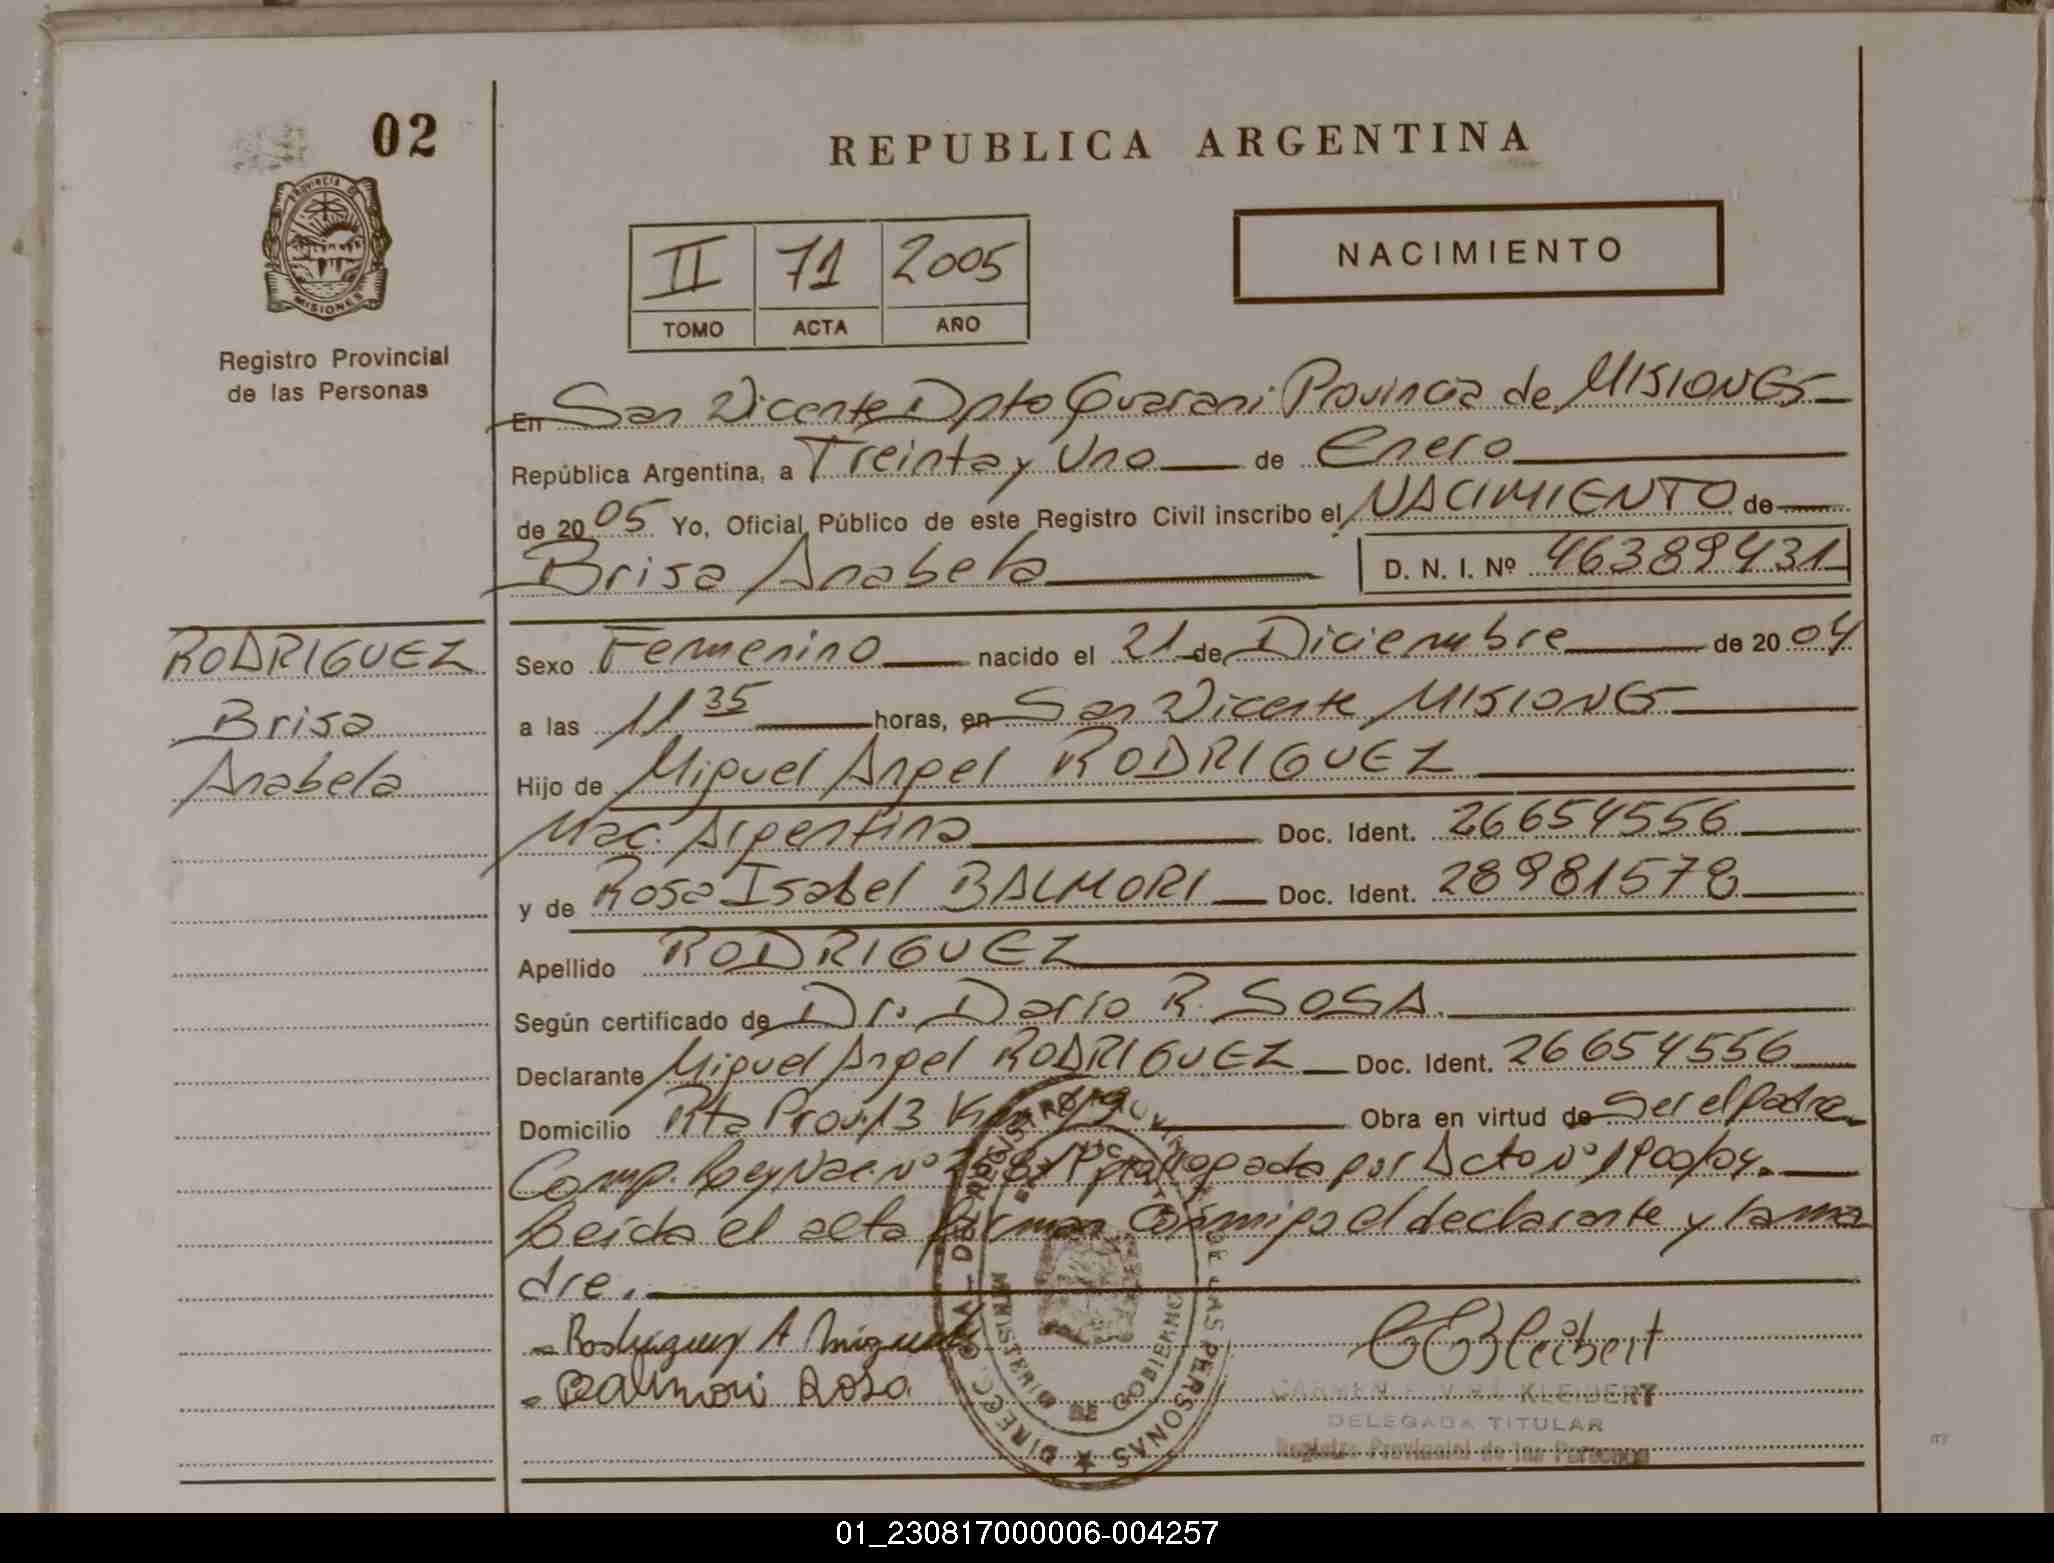 02
PROVINCIA DE
MISIONES
Registro Provincial
de las Personas
REPUBLICA ARGENTINA
II 71 2005
TOMO ACTA AÑO
NACIMIENTO
En San Vicente Dpto Guarani Provincia de MISIONES
República Argentina, a Treinta y Uno de Enero
de 2005 Yo, Oficial Público de este Registro Civil inscribo el NACIMIENTO de
Brisa Anabela D. N. I. Nº 46389431
RODRIGUEZ
Brisa
Anabela
Sexo Femenino nacido el 21 de Diciembre de 2004
a las 11 35 horas, en San Vicente MISIONES
Hijo de Miguel Angel RODRIGUEZ
Nac. Argentina Doc. Ident. 26654556
y de Rosa Isabel BALMORI Doc. Ident. 28981578
Apellido RODRIGUEZ
Según certificado de Dr. Dario R. SOSA.
Declarante Miguel Angel RODRIGUEZ Doc. Ident. 26654556
Domicilio Rta Prov. 13 Obra en virtud de Ser el Padre
Comp. Ley Nac. nº por Acto Nº 1900/04.
Leida el acta firman Conmigo el declarante y la ma
dre.
Rodriguez A Miguel
Balmori Rosa
CEKleibert
KLEIBERT
DELEGADA TITULAR
Registro Provincial de las Personas
MINISTERIO DE GOBIERNO
DE LAS PERSONAS
01_230817000006-004257